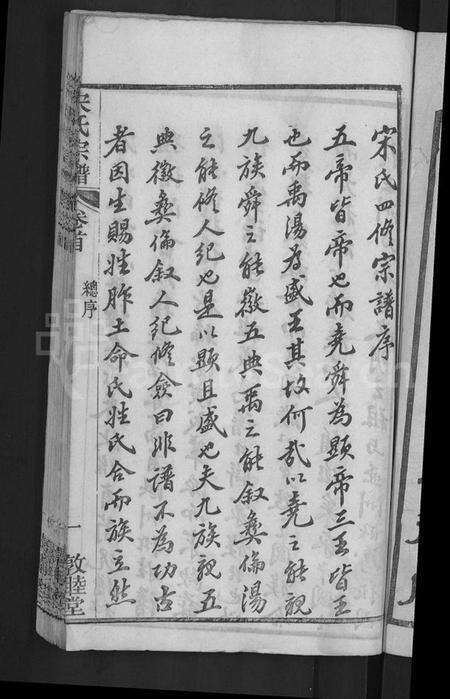 宋氏四修宗譜序
五帝皆帝也而堯舜為顯帝三王皆王
也而禹湯為盛王其故何哉以堯之能親
九族舜之能徽五典禹之能敘彝倫湯
之能修人紀也是以顯且盛也夫九族親五
典徽彝倫敘人紀修僉曰非譜不為功古
者因生賜姓胙土命氏姓氏合而族立然
宋氏宗譜 卷首
總序
一 敦睦堂